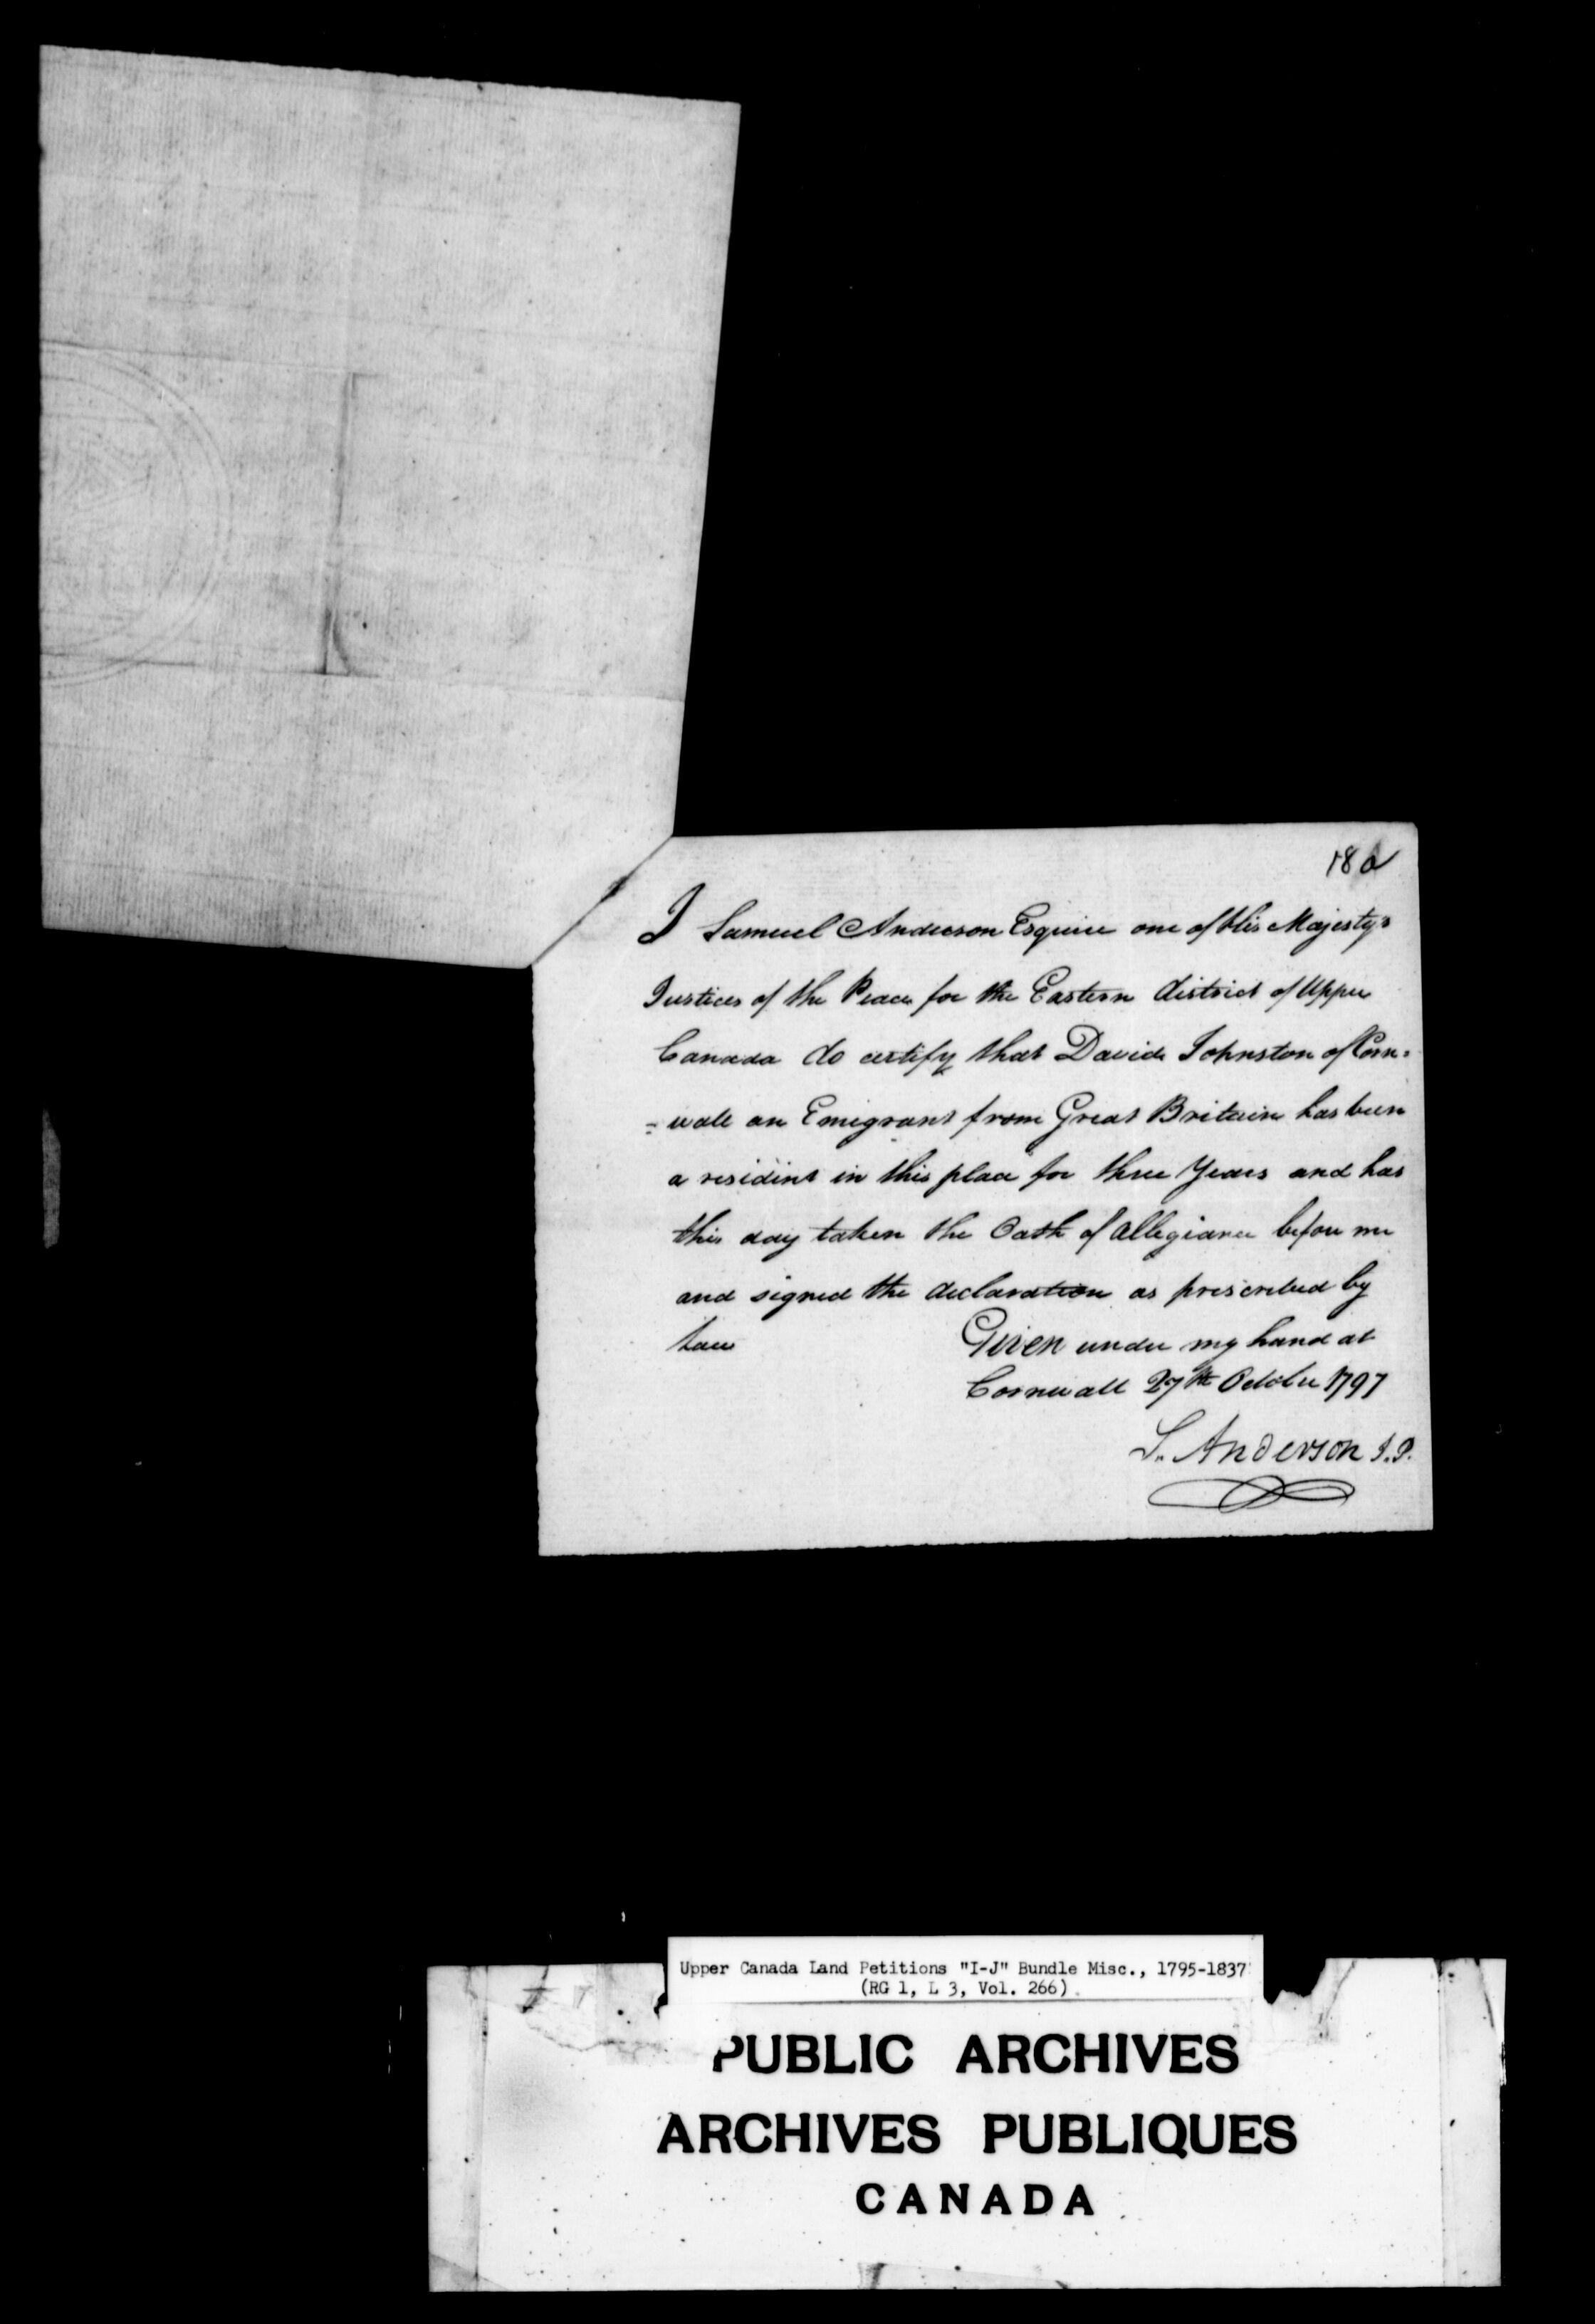 18a
I Samuel Anderson Esquire one of His Majestys
Justices of the Peace for the Eastern district of Upper
Canada do certify that David Johnston of Corn=
=wall an Emigrant from Great Britain has been
a resident in this place for three Years and has
this day taken the Oath of allegiance before me
and signed the declaration as prescribed by
Law Given under my hand at
Cornwall 27th October 1797
S. Anderson J.P.
Upper Canada Land Petitions "I-J" Bundle Misc., 1795-1837
(RG 1, L 3, Vol. 266)
PUBLIC ARCHIVES
ARCHIVES PUBLIQUES
CANADA